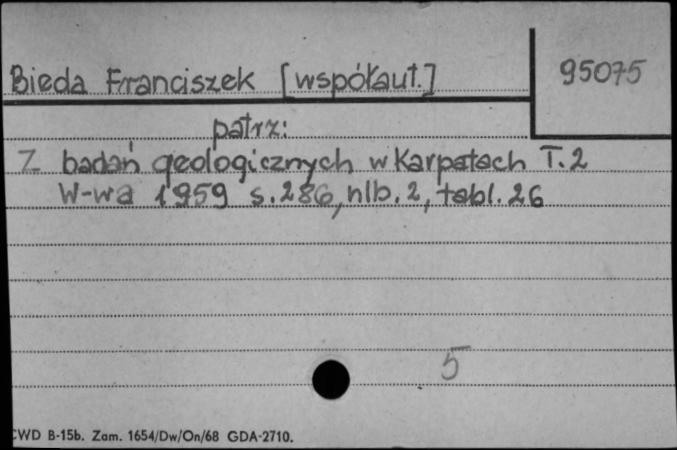 95075
Bieda Franciszek [współaut.]
patrz:
Z badań geologicznych w Karpatach T.2
W-wa 1959 s.286, nlb.2, tabl.26
5
CWD B-15b. Zam. 1654/Dw/On/68 GDA-2710.